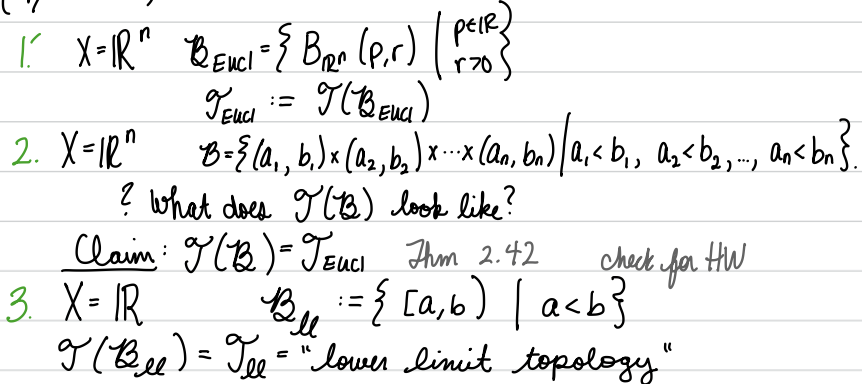 1. X = ℝⁿ 𝓑_Eucl = { B_ℝⁿ (p,r) | p∈ℝ r>0 }
𝒯_Eucl := 𝒯(𝓑_Eucl)
2. X = ℝⁿ 𝓑 = {(a₁, b₁) × (a₂, b₂) × ⋯ × (aₙ, bₙ) | a₁ < b₁, a₂ < b₂, ..., aₙ < bₙ}.
? What does 𝒯(𝓑) look like?
Claim: 𝒯(𝓑) = 𝒯_Eucl Thm 2.42 check for HW
3. X = ℝ 𝓑_ll := { [a,b) | a < b }
𝒯(𝓑_ll) = 𝒯_ll = "lower limit topology"